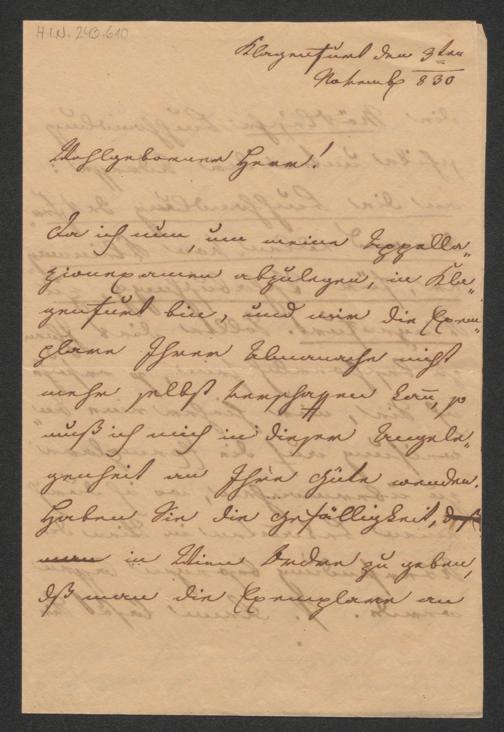 H.I.N. 243.610
Klagenfurt den 3ten
Novemb 830
Wohlgeborener Herr!
Da ich nun, um meine Appella„
zionsexamen abzulegen, in Kla„
genfurt bin, und mir die Exem„
plare Ihres Almanachs nicht
mehr selbst verschaffen kann, so
muß ich mich in dieser Angele„
genheit an Ihre Güte wenden.
Haben Sie die Gefälligkeit, daß
man in Wien Ordre zu geben,
dß man die Exemplare an